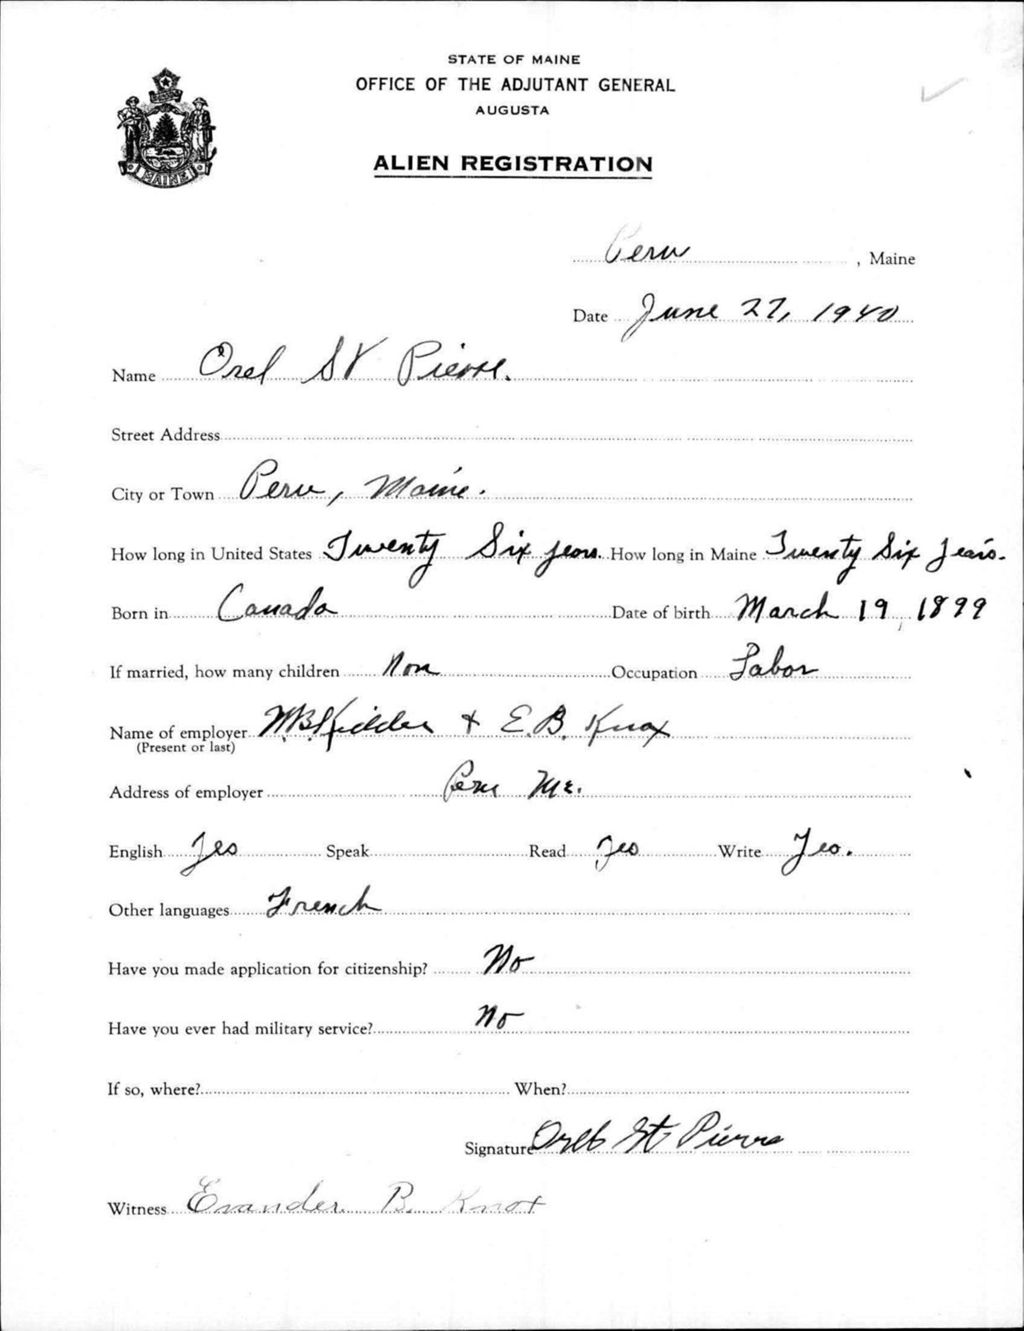 STATE OF MAINE
OFFICE OF THE ADJUTANT GENERAL
AUGUSTA
ALIEN REGISTRATION
MAINE
Peru, Maine
Date June 27, 1940
Name Orel St Pierre.
Street Address
City or Town Peru, Maine.
How long in United States Twenty Six years How long in Maine Twenty Six years.
Born in Canada Date of birth March 19, 1899
If married, how many children Non Occupation Labor
Name of employer W.B. Kidder + E.B. Knox
(Present or last)
Address of employer Peru Me.
English Yes Speak Read Yes Write Yes.
Other languages French
Have you made application for citizenship? No
Have you ever had military service? No
If so, where? When?
Signature St Pierre
Witness Evander B. Knox